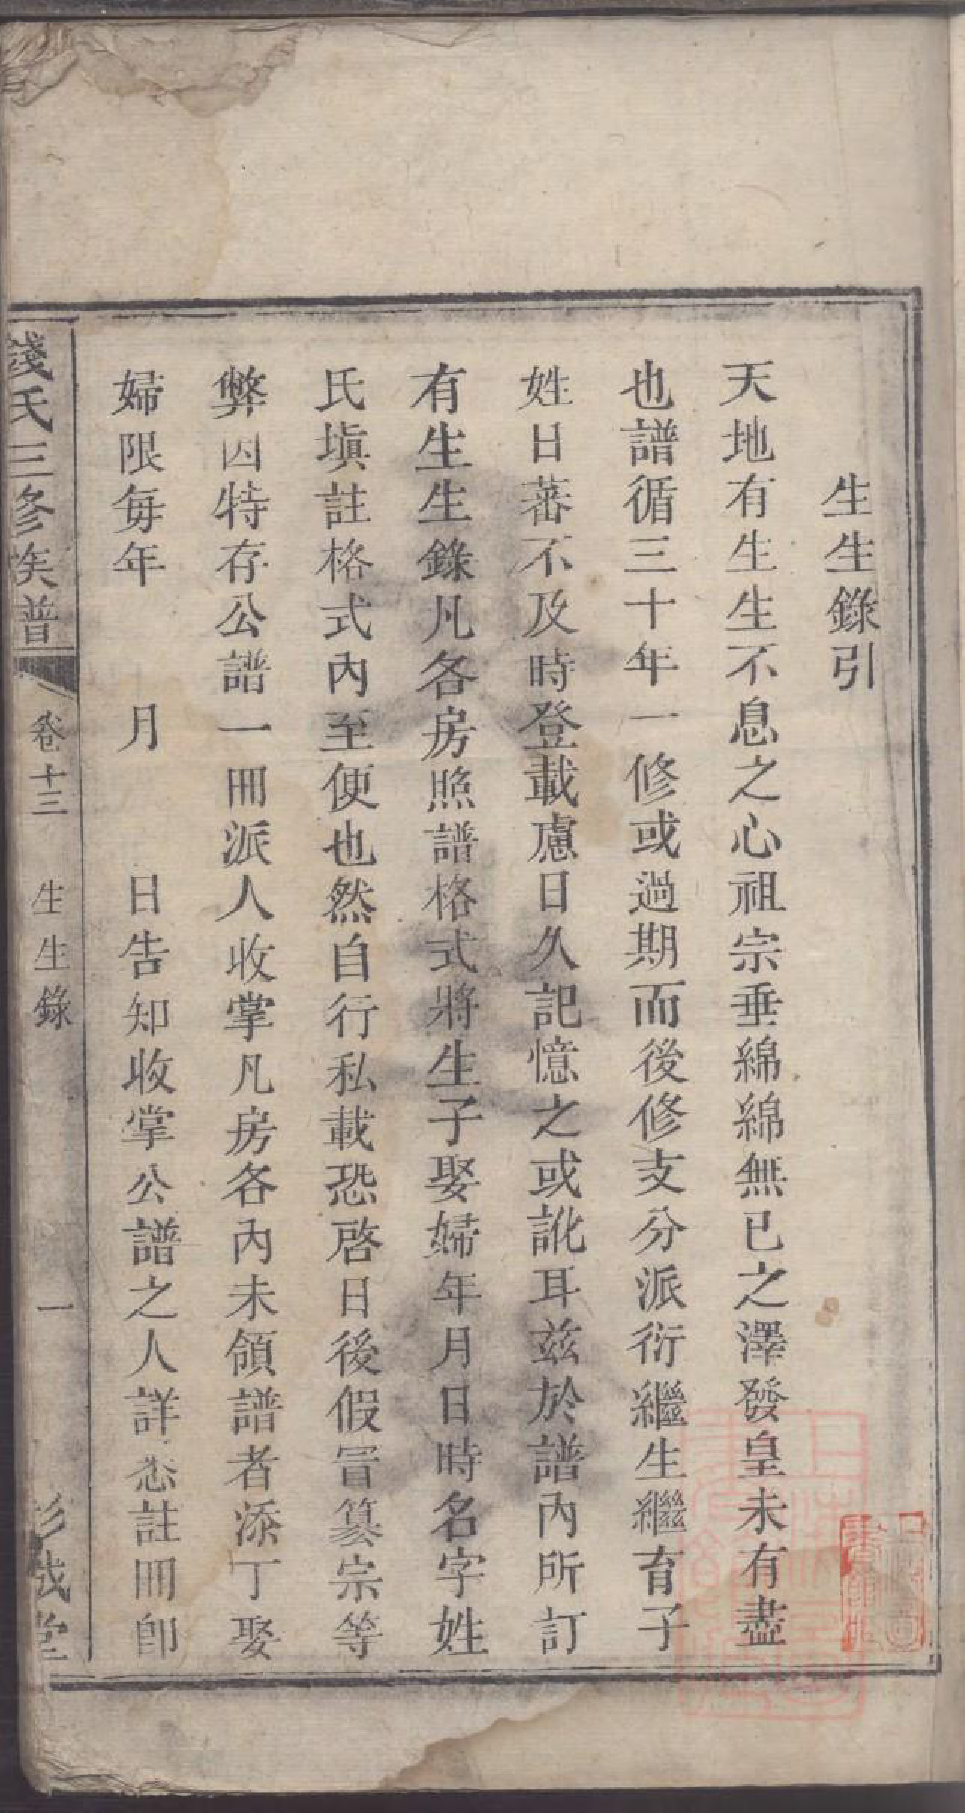 生生錄引
天地有生生不息之心祖宗垂綿綿無已之澤發皇未有盡
也譜循三十年一修或過期而後修支分派衍繼生繼育子
姓日蕃不及時登載慮日久記憶之或訛耳兹於譜內所訂
有生生錄凡各房照譜格式將生子娶婦年月日時名字姓
氏塡註格式內至便也然自行私載恐啓日後假冐篡宗等
弊因特存公譜一冊派人收掌凡房各內未領譜者添丁娶
婦限每年 月 日告知收掌公譜之人詳悉註冊卽
錢氏三修族譜 卷十三 生生錄 一 彭城堂